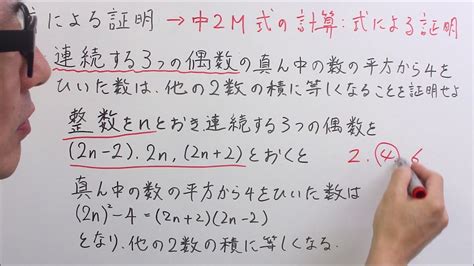 による証明 → 中2M 式の計算:式による証明
連続する3つの偶数の真ん中の数の平方から4を
ひいた数は、他の2数の積に等しくなることを証明せよ
整数をnとおき連続する3つの偶数を
(2n-2), 2n, (2n+2)とおくと
2. 4. 6
真ん中の数の平方から4をひいた数は
(2n)²-4=(2n+2)(2n-2)
となり、他の2数の積に等しくなる.